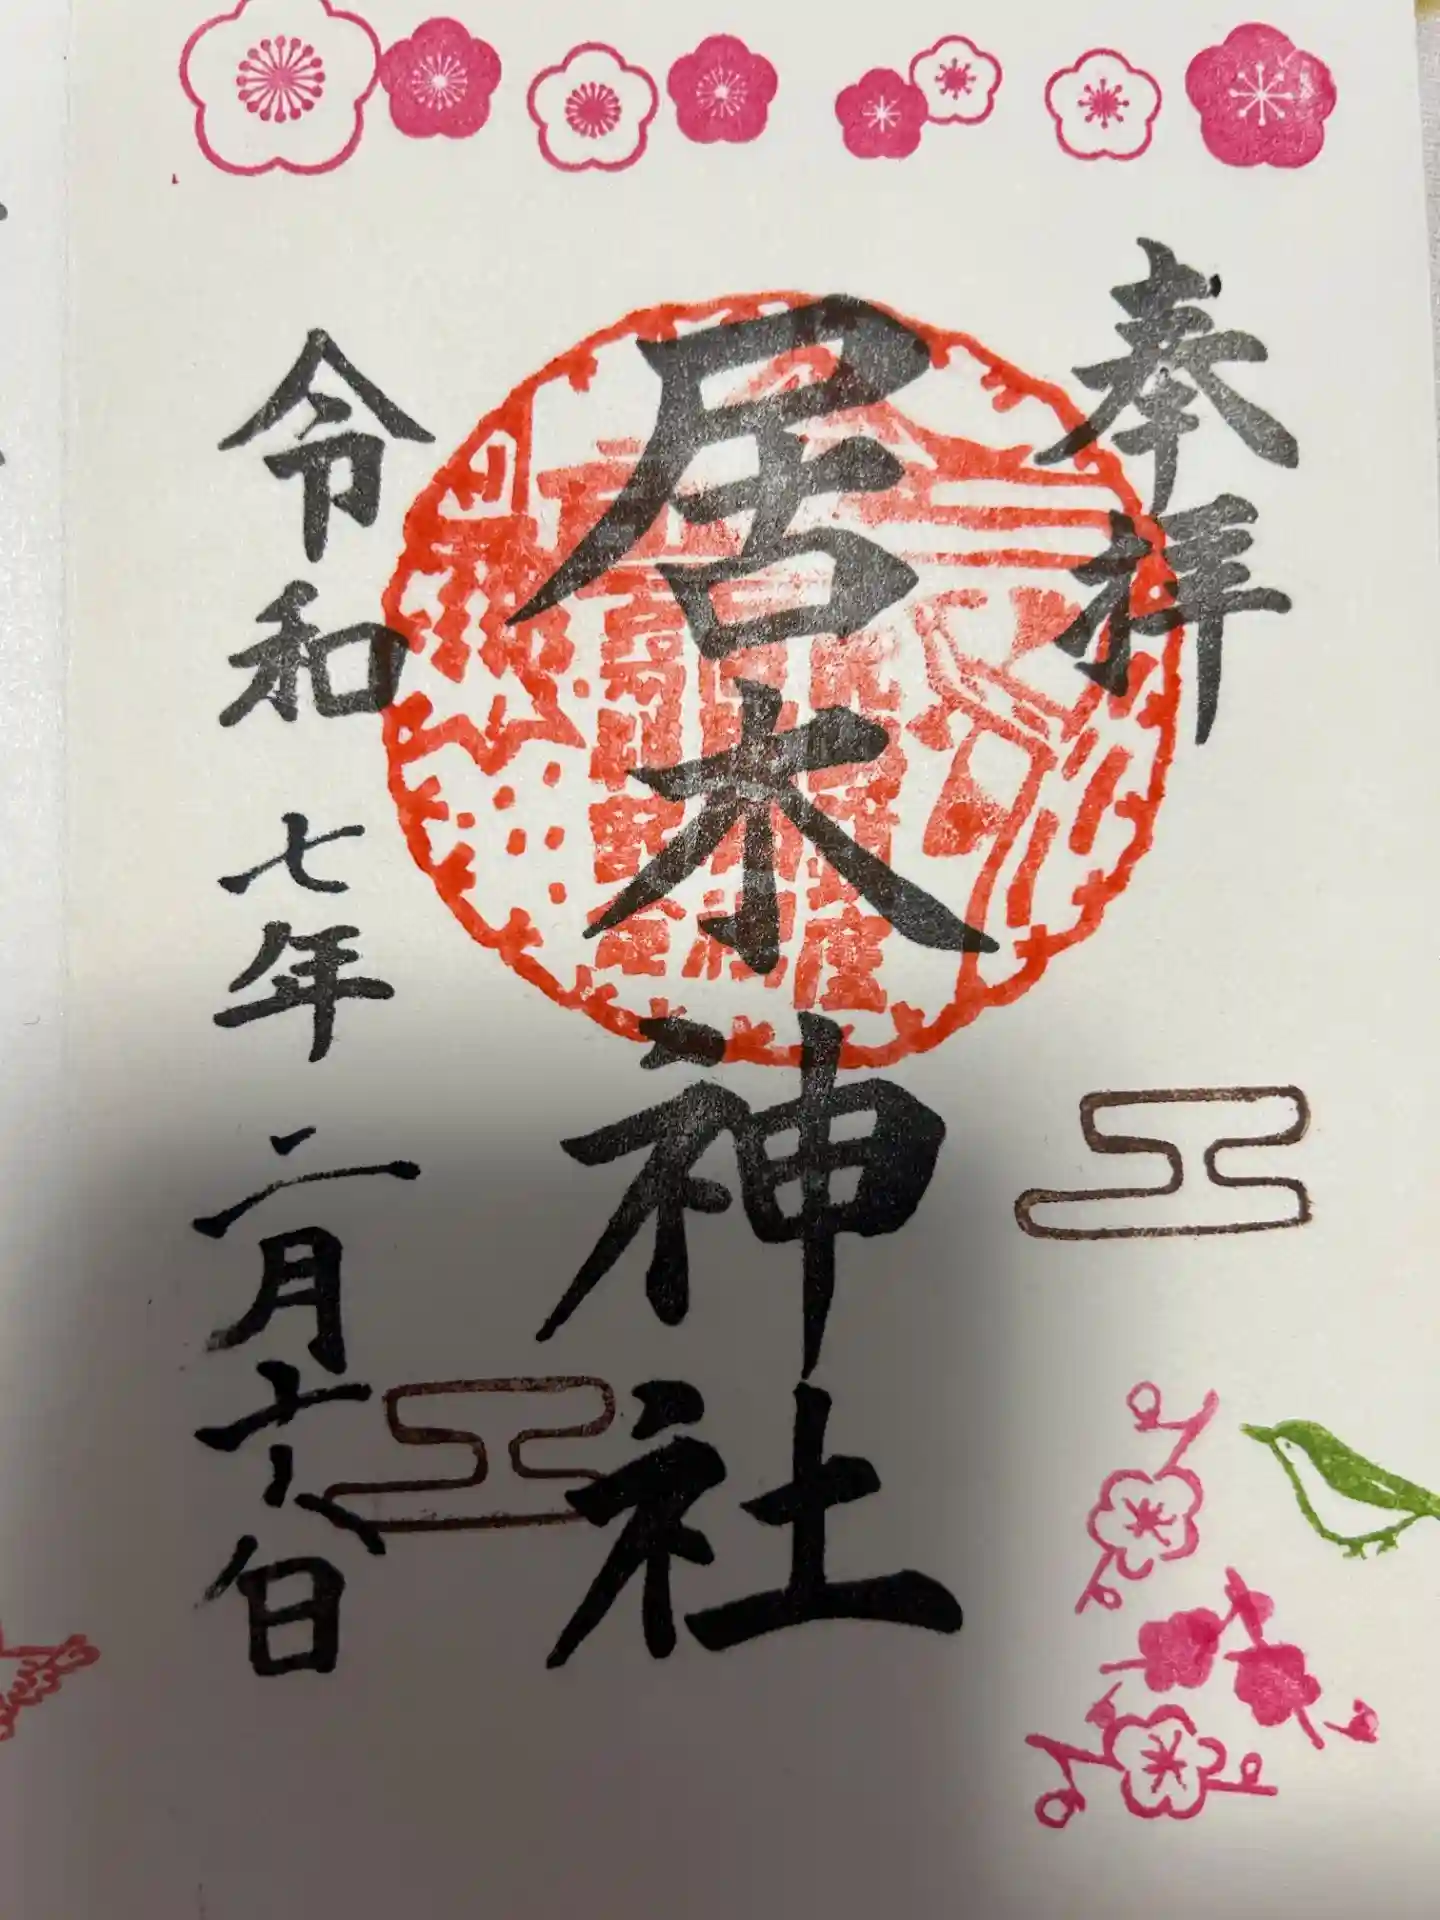 奉拝
居木神社
令和七年二月十八日